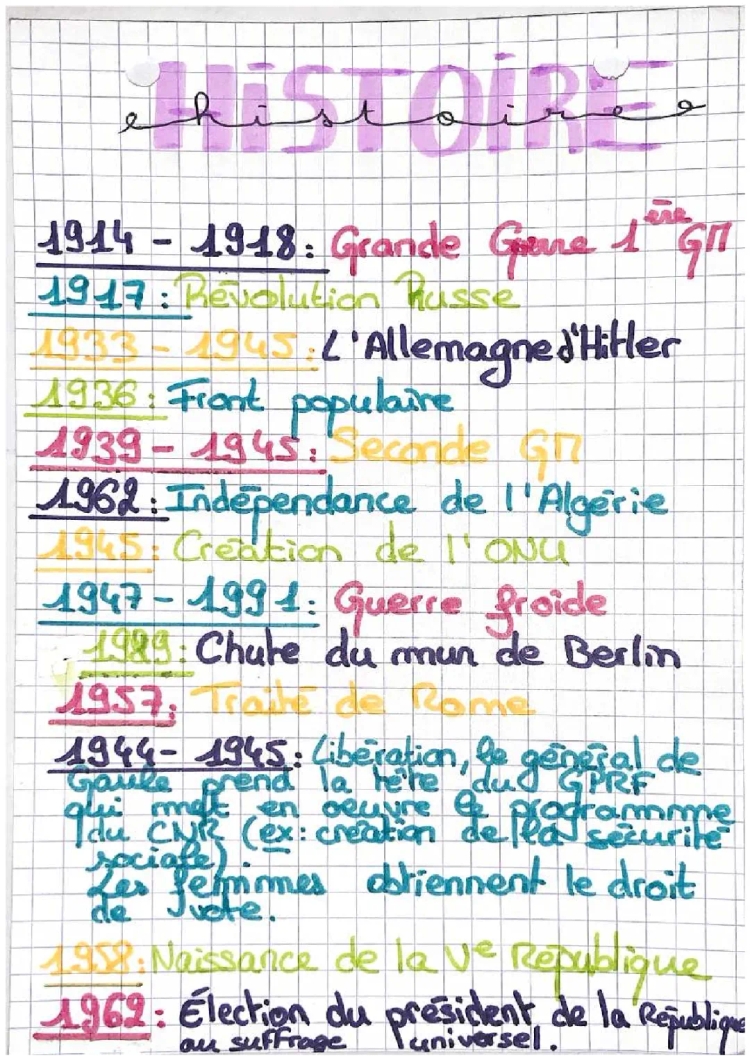 HiSTOIRE
histoire
1914 - 1918: Grande Guerre 1ère GM
1917: Révolution Russe
1933 - 1945: L'Allemagne d'Hitler
1936: Front populaire
1939 - 1945: Seconde GM
1962: Indépendance de l'Algérie
1945: Création de l'ONU
1947 - 1991: Guerre froide
1989: Chute du mur de Berlin
1957: Traité de Rome
1944 - 1945: Libération, le général de
Gaule prend la tête du GPRF
qui met en oeuvre le programmme
du CNR (ex: création de la sécurité
sociale)
Les femmes obtiennent le droit
de vote.
1958: Naissance de la Ve République
1962: Élection du président de la République
au suffrage universel.